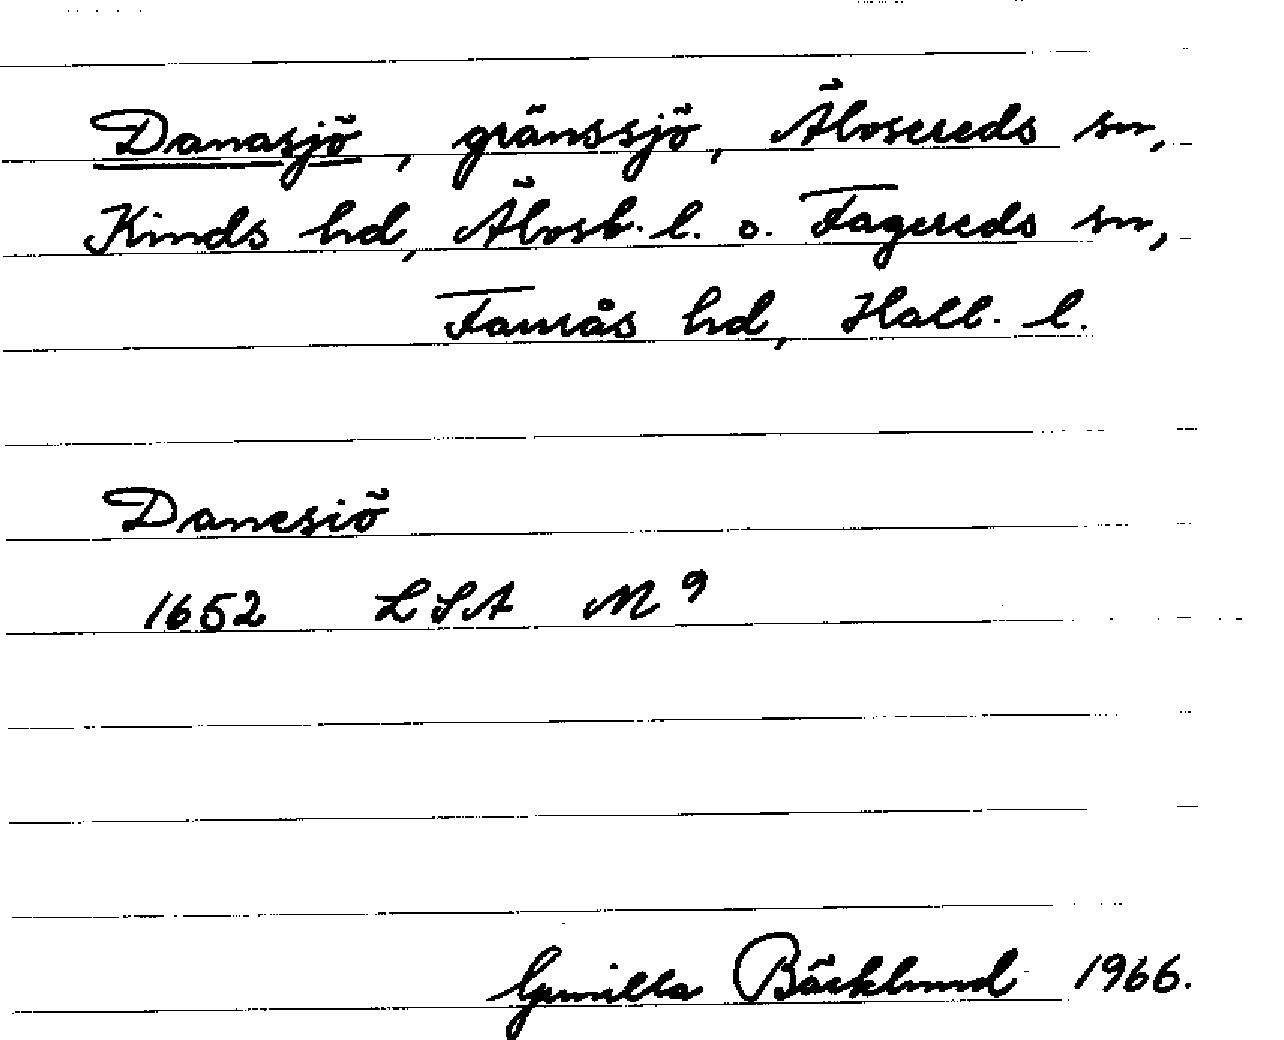 Danasjö, gränssjö, Älvsereds sn,
Kinds hd, Älvsb. l. o. Fagereds sn,
Faurås hd, Hall. l.
Danesiö
1652 LSA M 9
Gunilla Bäcklund 1966.